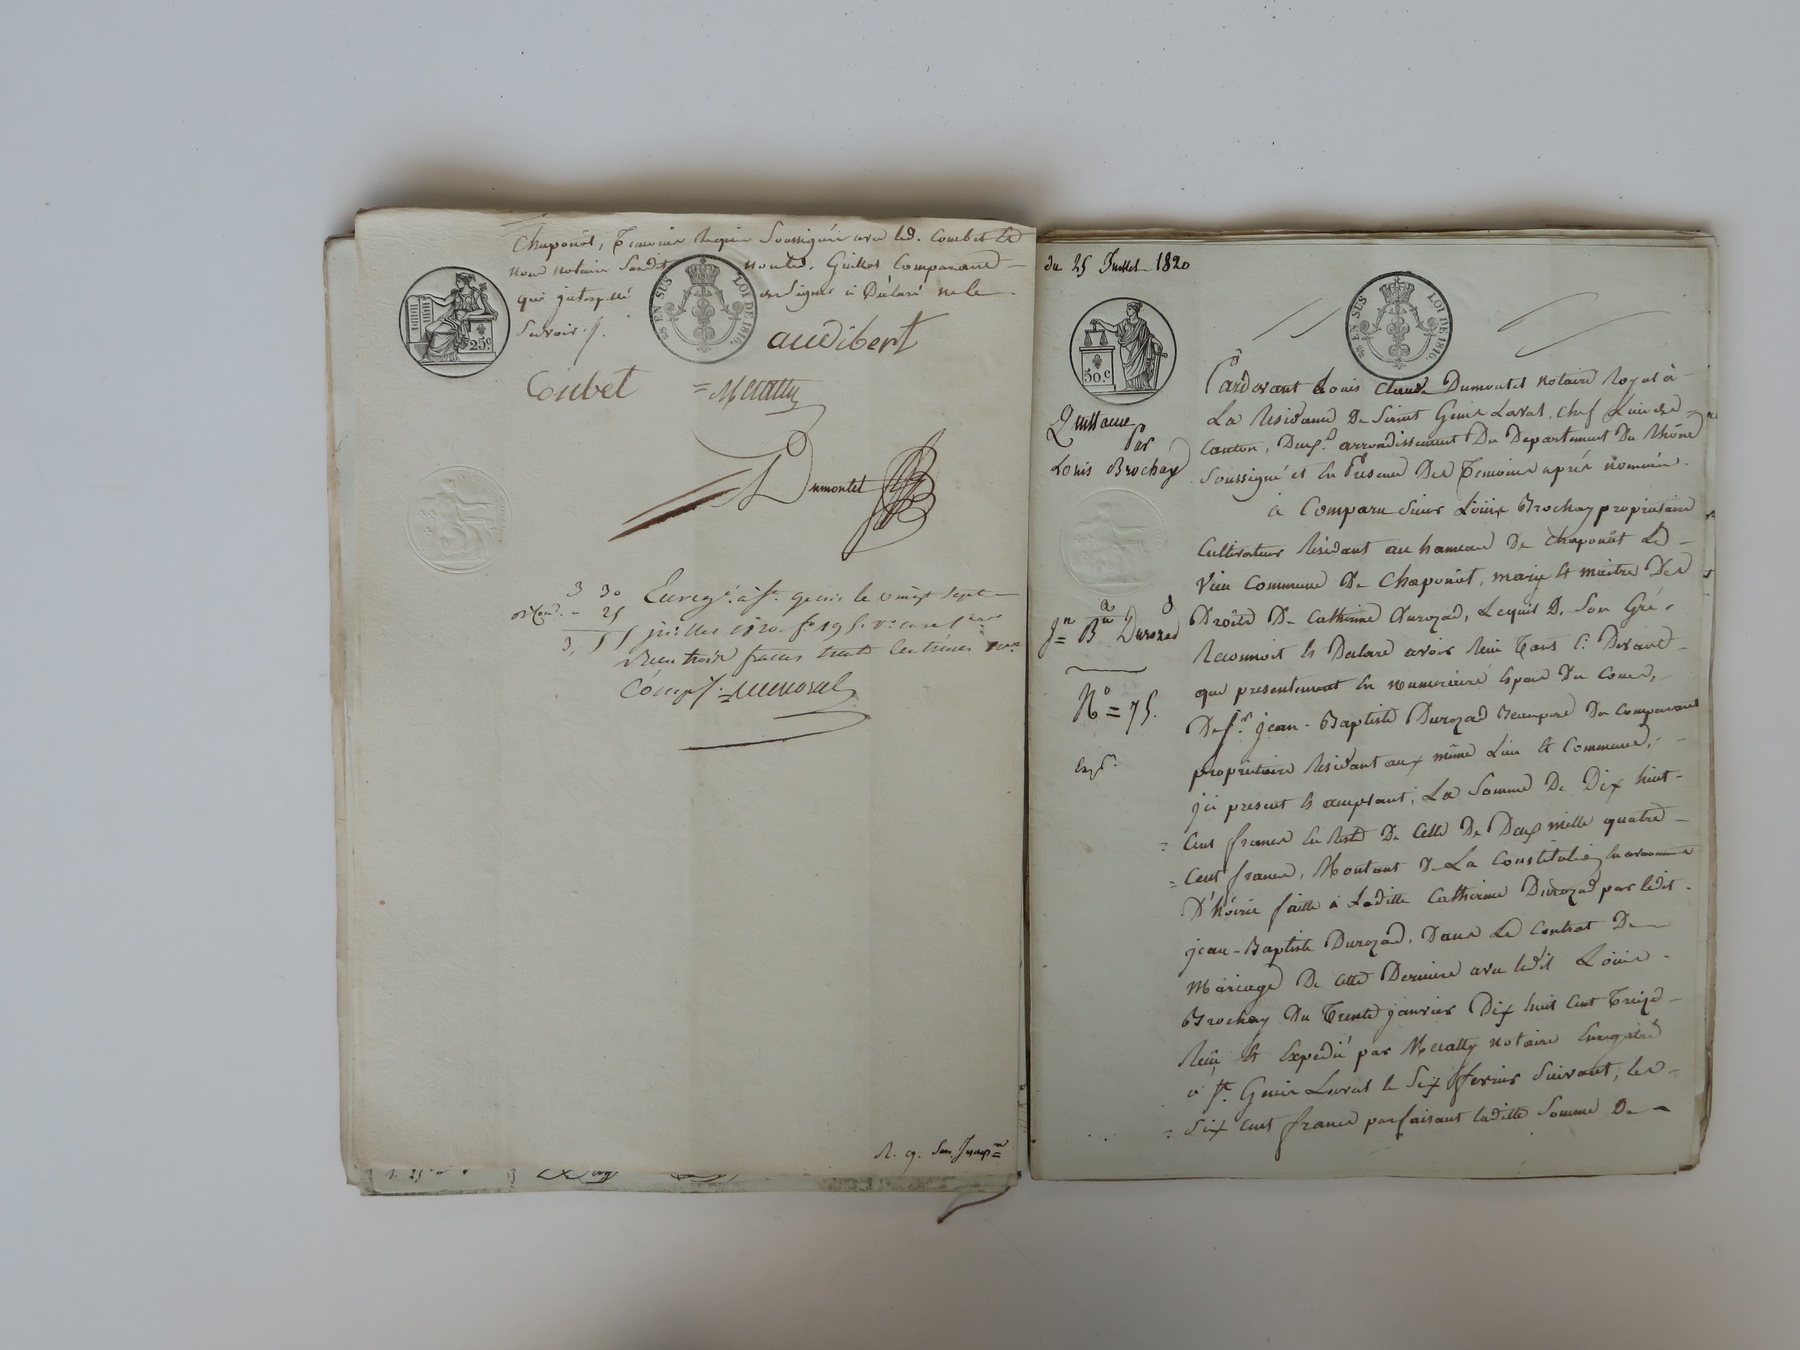 Chaponôt, Temoins Requis Soussignés avec led. Combet Et
nous notaire Sandit nontled. Guillot Comparant
qui interpellé de Signer a Déclaré ne le
Savoir ./.
25 EN SUS LOI DE 1816.
25c.
audibert
Coubet = Meratty
Dumontet
3 30
25
3, 55
Enregé. à St. genis le vingt Sept
juillet 1820. fo. 195. vo. case 1ere
Reçu trois francs trente centimes
R. g. Sur Transp.on
du 25 Juillet 1820
25 EN SUS LOI DE 1816.
50.c
Quittance
Par
Louis Brochay
à
Jn. Bte. Durozad
No = 75.
Expé.
Pardevant Louis Claude Dumontet notaire Royal à
La Residence De Saint Genis Laval, chef Lieu de
Canton, Deux.e arrondissement Du Departement Du Rhône
Soussigné et En Presence Des Temoins après nommés.
a Comparu Sieur Louis Brochay proprietaire
Cultivateur Résidant au hameau De Chaponôt Le
Vieu Commune De Chaponôt, mary Et maitre Des
Droits De Catherine Durozad, Lequel De Son Gré,
Reconnoit Et Declare avoir Reçu Tans Ci Devant
que presentement En numeraire Espece Du Cours,
De Sr. jean-Baptiste Durozad Beaupere Du Comparant
proprietaire Residant aux même Lieu Et Commune,
ici present Et acceptant, La Somme De Dix huit
= Cent francs En Reste De Celle De Deux mille quatre
= Cent francs, Montant De La Constitution En avancement
D'hôirie faitte à Laditte Catherine Durozad par ledit
jean-Baptiste Durozad, Dans Le Contrat De
Mariage De Cette Derniere avec ledit Louis
Brochay Du Trente janvier Dix huit Cent Treize
Reçu Et Expedié par Meratty notaire Enregistré
a St. Genis Laval le Six fevrier Suivant, les
= Six Cent francs parfaisant laditte Somme De